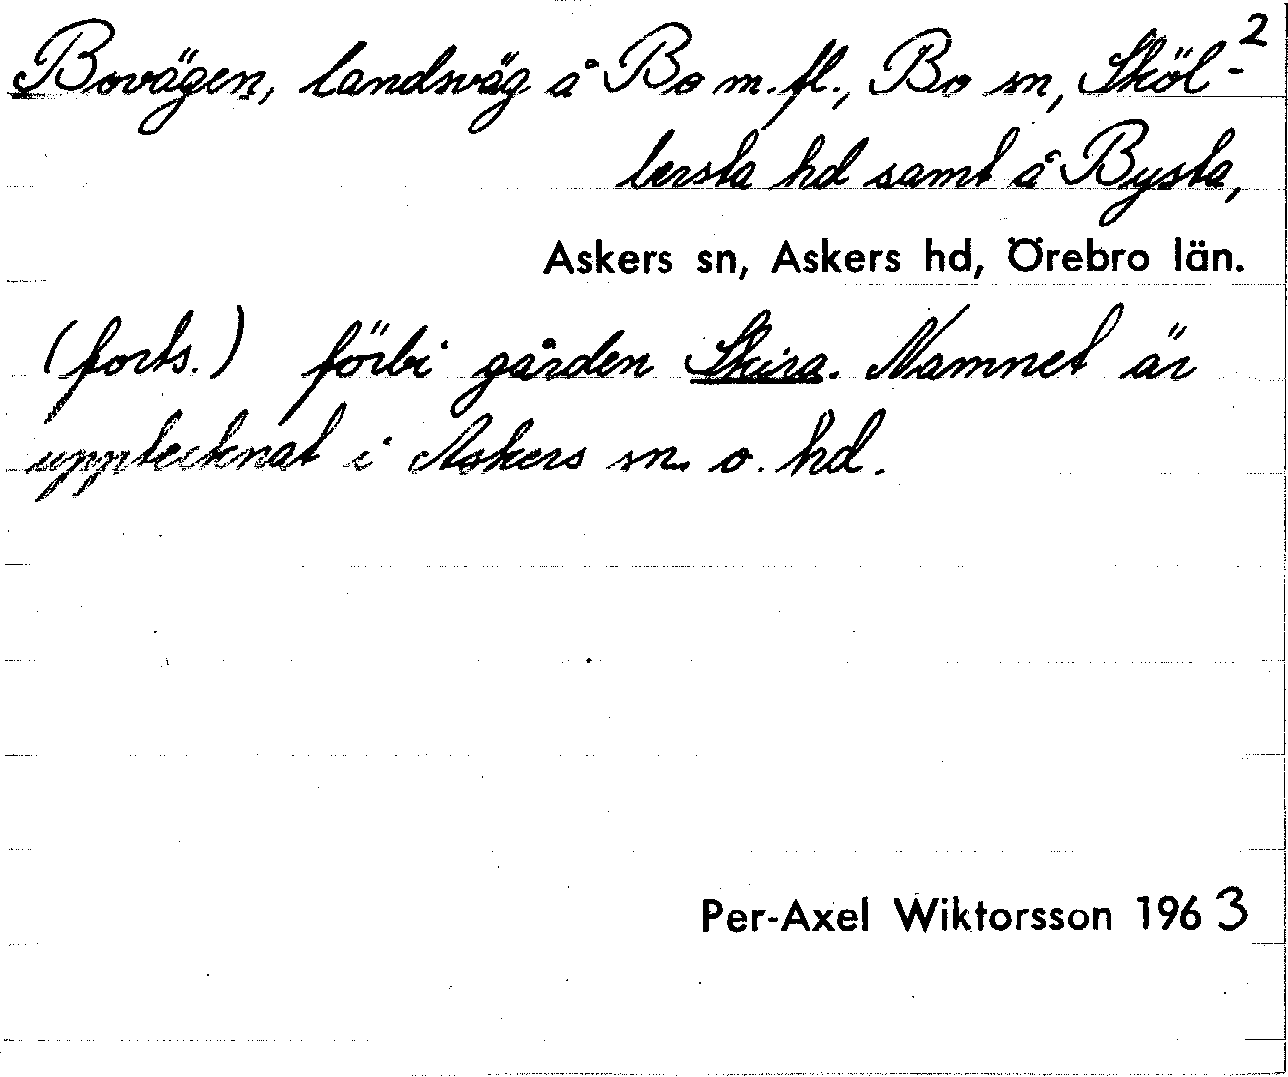 2
Bovägen, landsväg å Bo m.fl., Bo sn, Sköl-
lersta hd samt å Bysta,
Askers sn, Askers hd, Örebro län.
(forts.) förbi gården Skira. Namnet är
upptecknat i Askers sn o. hd.
Per-Axel Wiktorsson 1963